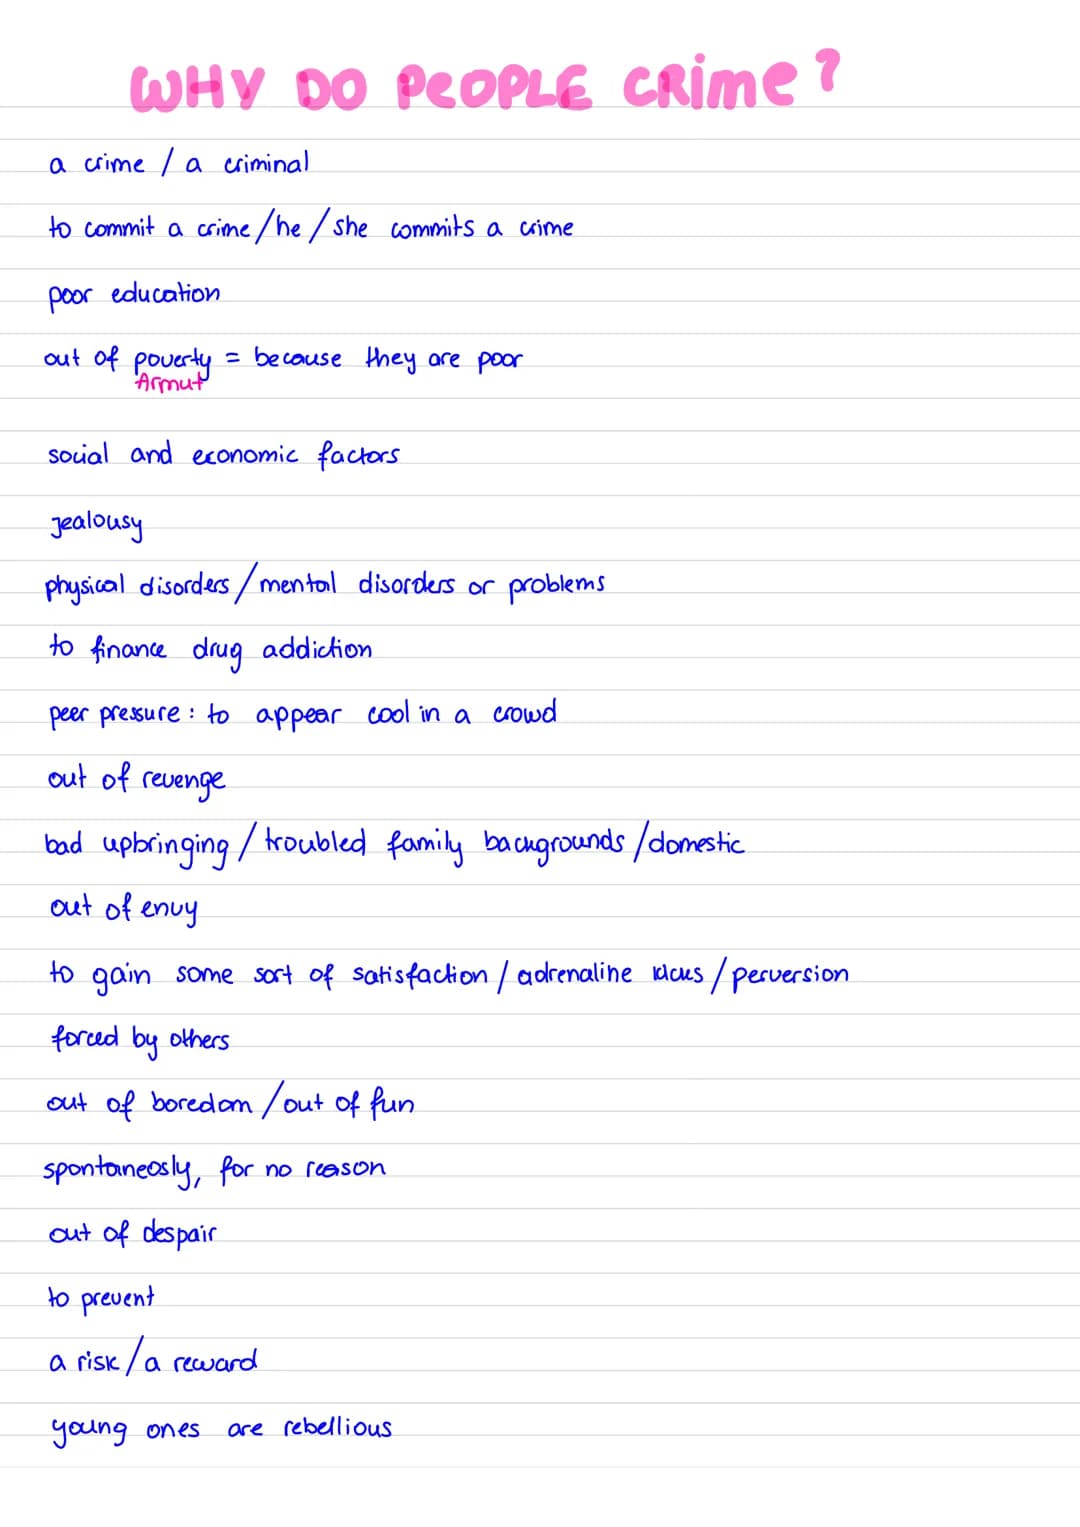 WHY DO PEOPLE CRime?
a crime / a criminal
to commit a crime/he/she commits a crime
poor education
out of poverty = because they are poor
Armut
social and economic factors
jealousy
physical disorders/mental disorders or problems
to finance drug addiction
peer pressure: to appear cool in a crowd
out of revenge
bad upbringing / troubled family backgrounds /domestic
out of envy
to gain some sort of satisfaction / adrenaline kicks / perversion
forced by others
out of boredom /out of fun
spontaneosly, for no reason
out of despair
to prevent
a risk/a reward
young ones are rebellious